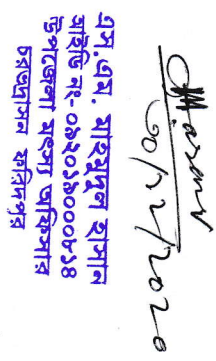 ৩০/১২/২০২০
এস.এম. মাহমুদুল হাসান
আইডি নং- ০৯২০১৯০০০৮১৪
উপজেলা মৎস্য অফিসার
চরভদ্রাসন ফরিদপুর